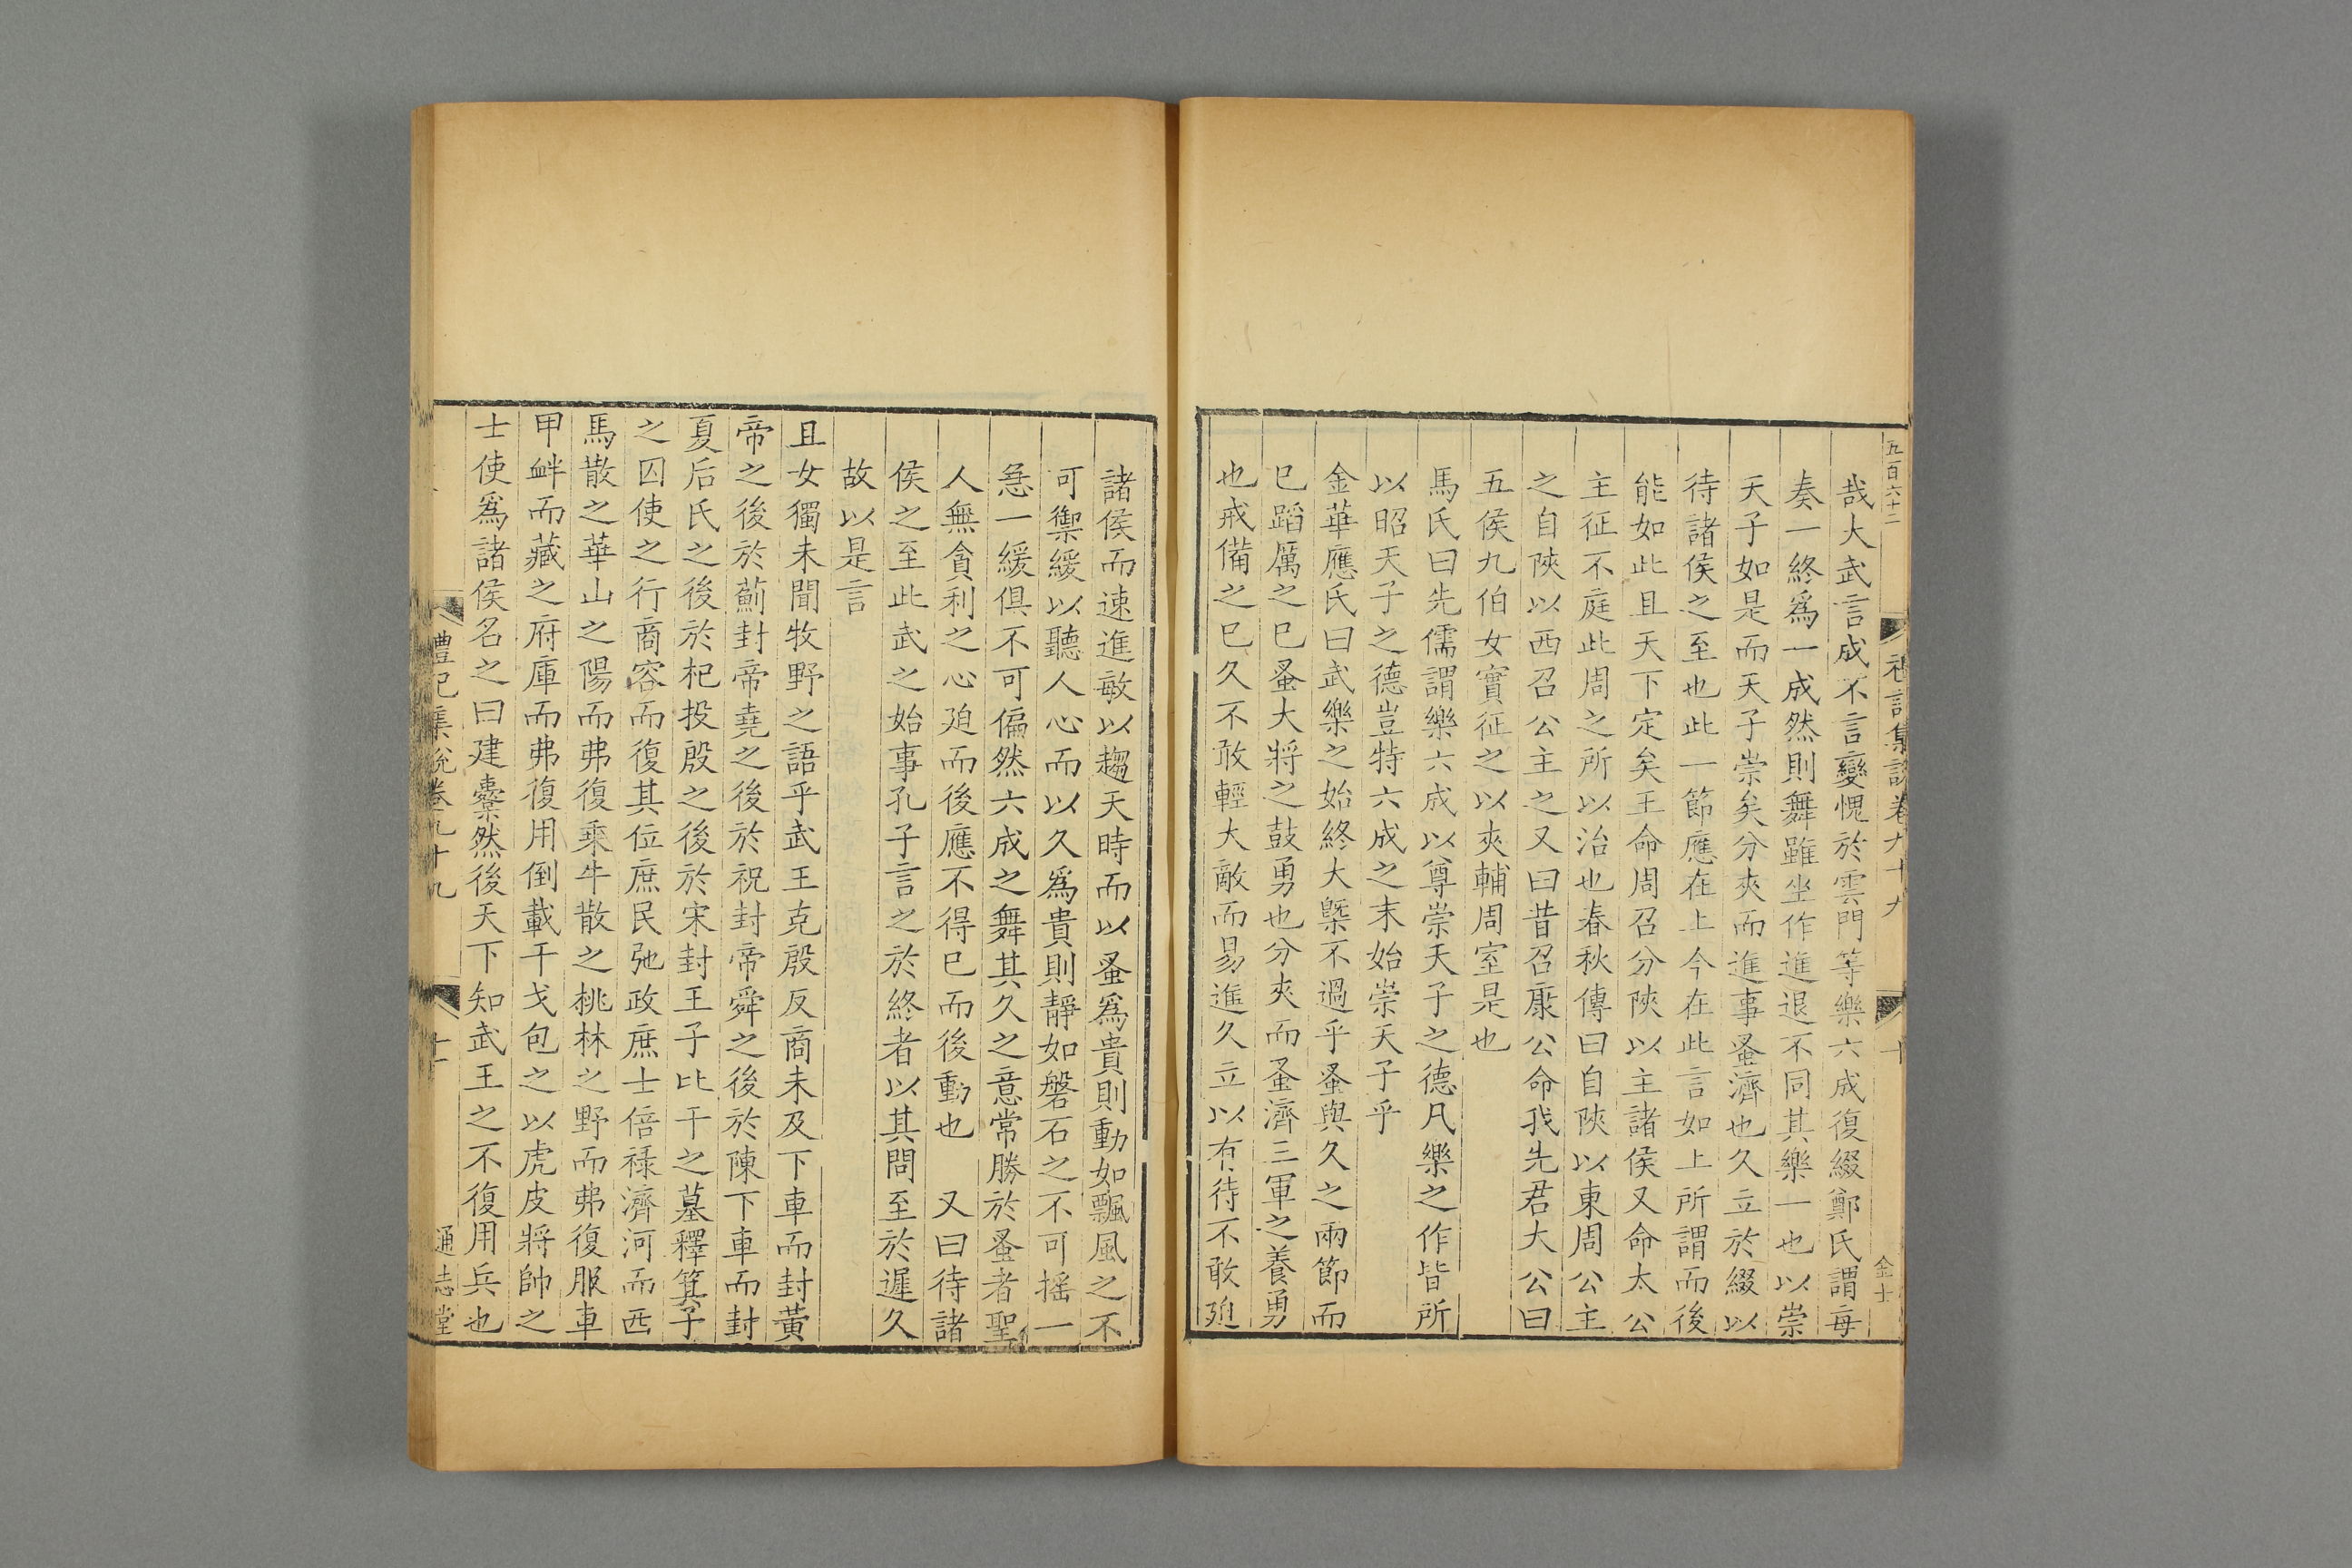 五百六十二
禮記集說卷九十九
十
金士
哉大武言成不言變愧於雲門等樂六成復綴鄭氏謂每
奏一終爲一成然則舞雖坐作進退不同其樂一也以崇
天子如是而天子崇矣分夾而進事蚤濟也久立於綴以
待諸侯之至也此一節應在上今在此言如上所謂而後
能如此且天下定矣王命周召分陝以主諸侯又命太公
主征不庭此周之所以治也春秋傳曰自陝以東周公主
之自陝以西召公主之又曰昔召康公命我先君大公曰
五侯九伯女實征之以夾輔周室是也
馬氏曰先儒謂樂六成以尊崇天子之德凡樂之作皆所
以昭天子之德豈特六成之末始崇天子乎
金華應氏曰武樂之始終大槩不過乎蚤與久之兩節而
已蹈厲之已蚤大將之鼓勇也分夾而蚤濟三軍之養勇
也戒備之已久不敢輕大敵而易進久立以有待不敢廹
諸侯而速進敏以趨天時而以蚤爲貴則動如飄風之不
可禦緩以聽人心而以久爲貴則靜如磐石之不可搖一
急一緩俱不可偏然六成之舞其久之意常勝於蚤者聖
人無貪利之心廹而後應不得已而後動也 又曰待諸
侯之至此武之始事孔子言之於終者以其問至於遲久
故以是言
且女獨未聞牧野之語乎武王克殷反商未及下車而封黃
帝之後於薊封帝堯之後於祝封帝舜之後於陳下車而封
夏后氏之後於杞投殷之後於宋封王子比干之墓釋箕子
之囚使之行商容而復其位庶民弛政庶士倍祿濟河而西
馬散之華山之陽而弗復乘牛散之桃林之野而弗復服車
甲衅而藏之府庫而弗復用倒載干戈包之以虎皮將帥之
士使爲諸侯名之曰建櫜然後天下知武王之不復用兵也
禮記集說卷九十九
十一
通志堂